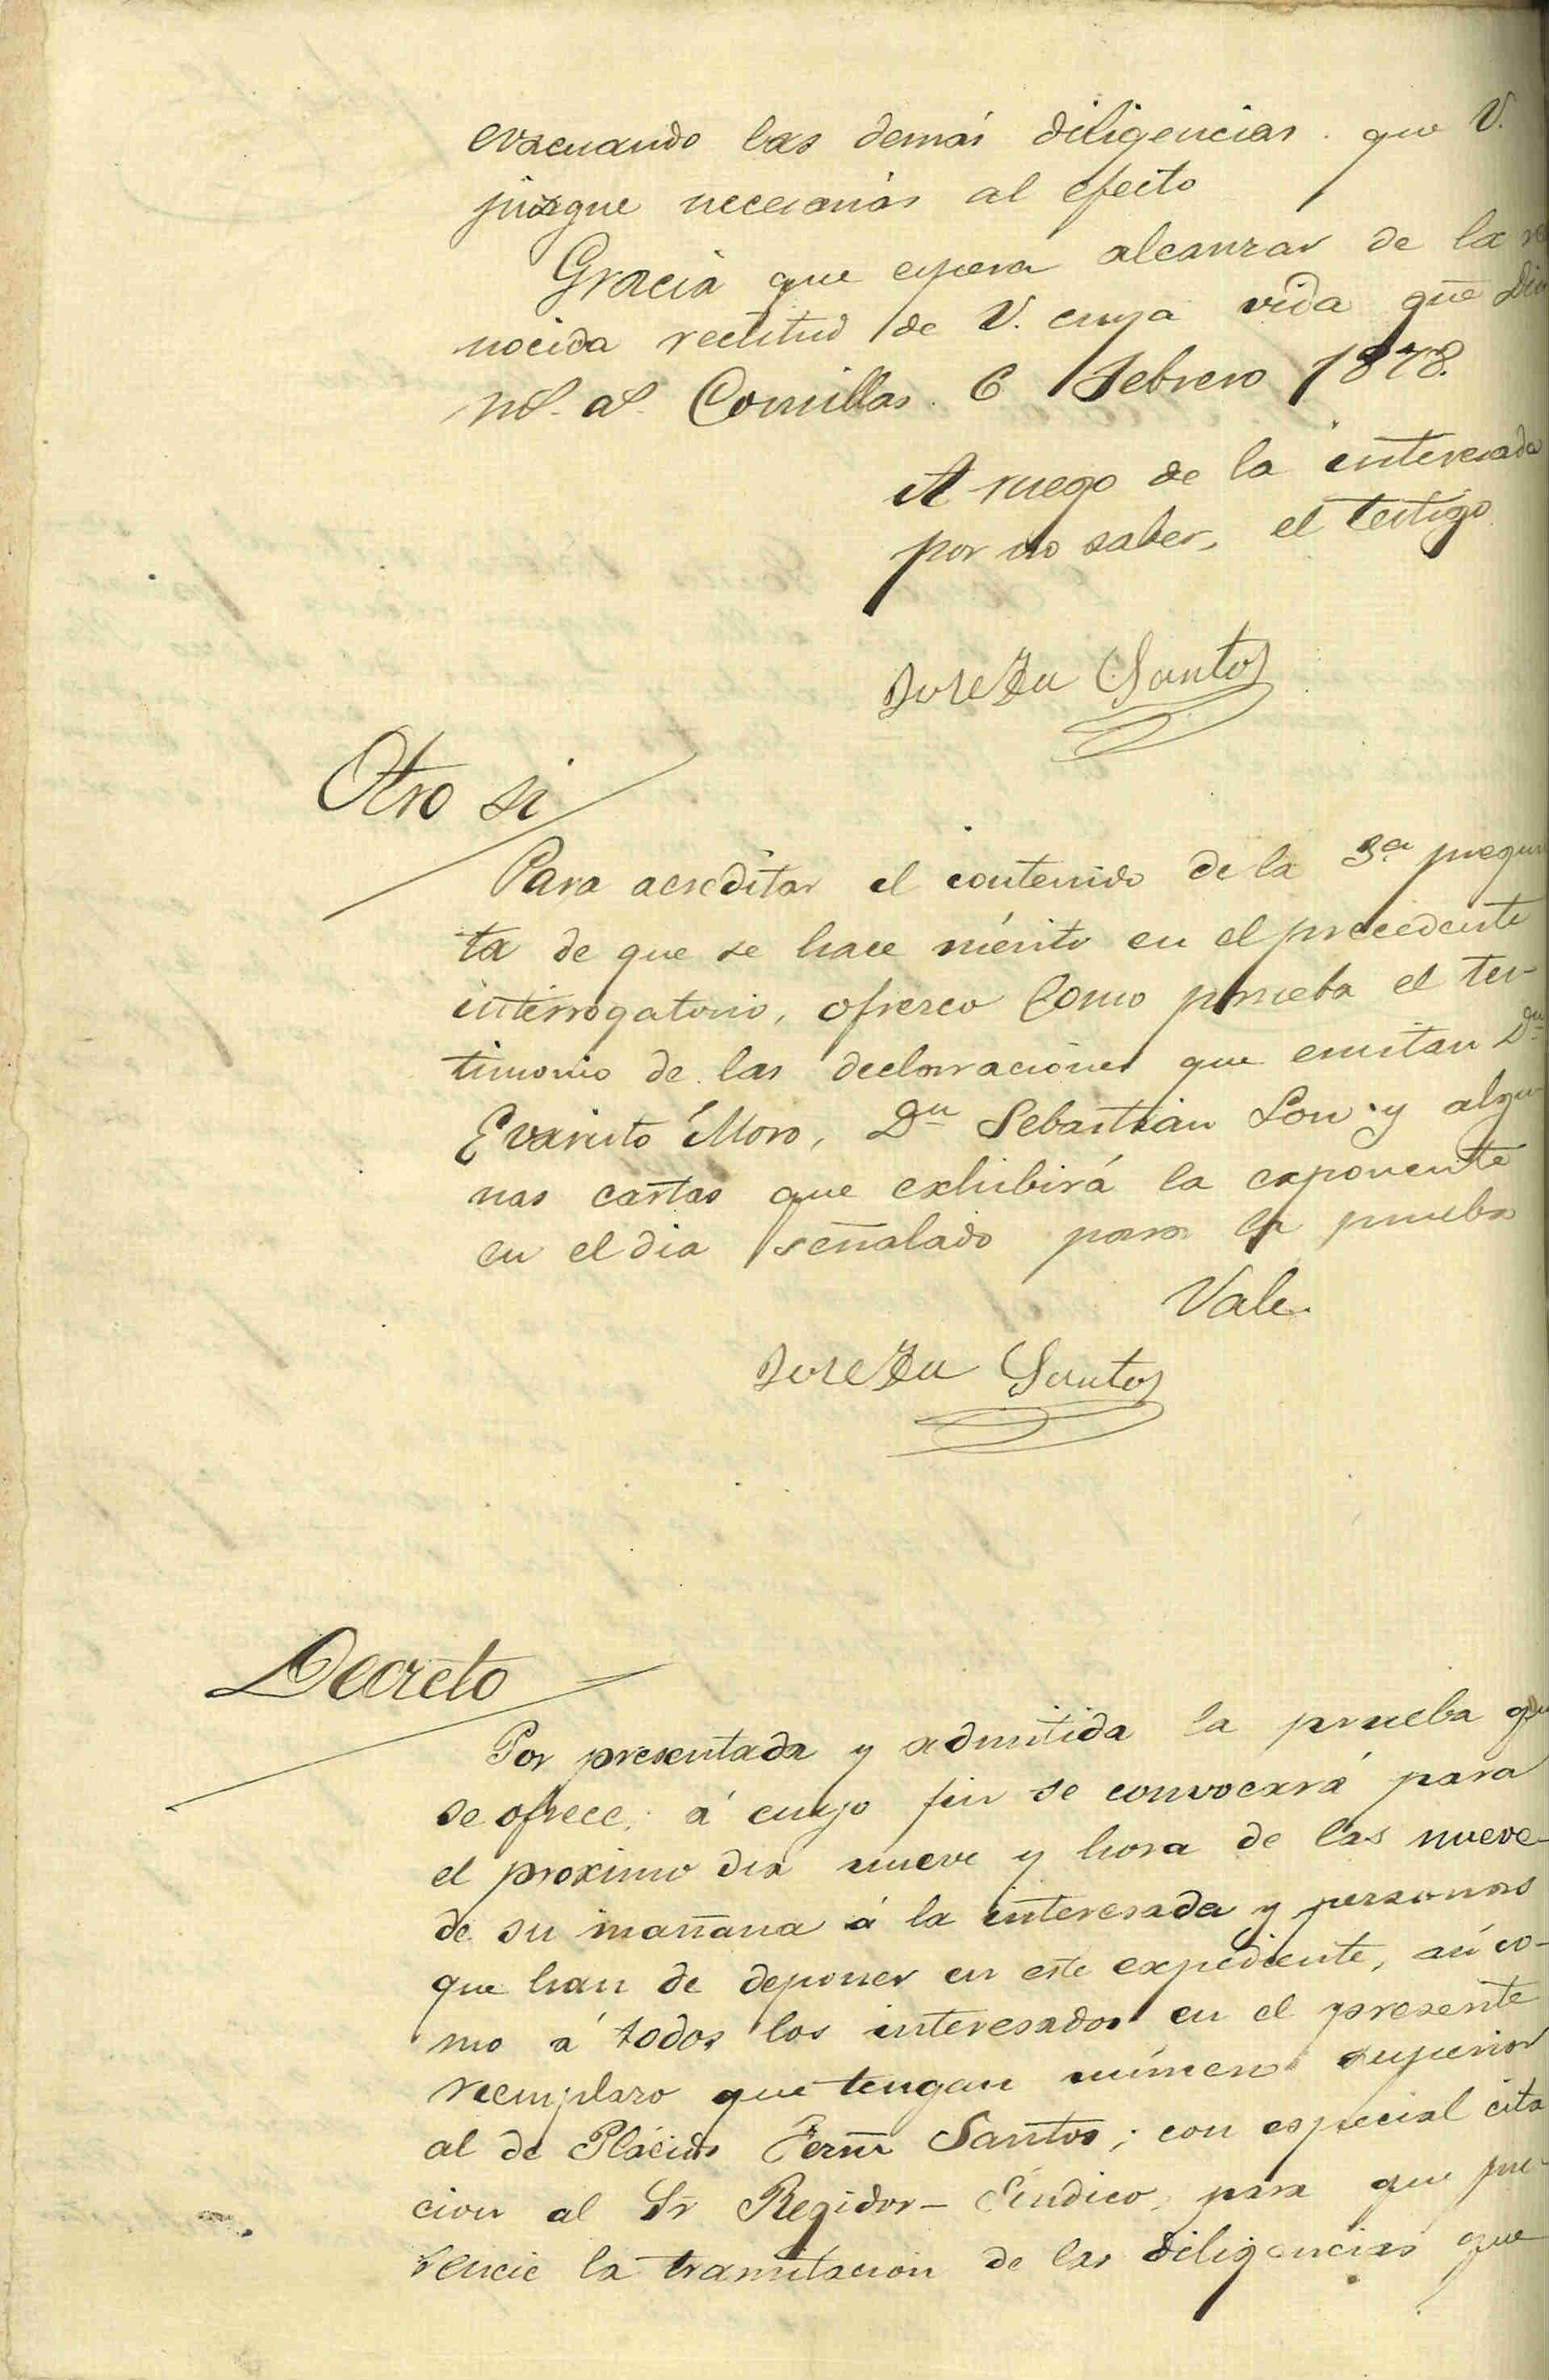 evacuando las demás diligencias que V.
juzgue necesarias al efecto
Gracia que espera alcanzar de la re
nocida rectitud de V. cuya vida gũe Dios
ms. as. Comillas 6 Febrero 1878.
A ruego de la interesada
por no saber, el testigo
Santos
Otro si
Para acreditar el contenido de la 3.ª pregun
ta de que se hace mérito en el precedente
interrogatorio, ofrezco como prueba el tes-
timonio de las declaraciones que emitan Dn
Evaristo Moro, Dn Sebastián Lon y algu-
nas cartas que exhibirá la exponente
en el dia señalado para la prueba
Vale.
Santos
Decreto
Por presentada y admitida la prueba que
se ofrece; á cuyo fin se convocará para
el proximo dia nueve y hora de las nueve
de su mañana á la interesada y personas
que han de deponer en este expediente, así co-
mo á todos los interesados en el presente
reemplazo que tengan número superior
al de Plácido Fernz Santos; con especial cita
cion al Sr Regidor-Síndico, para que pre-
sencie la tramitacion de las diligencias que